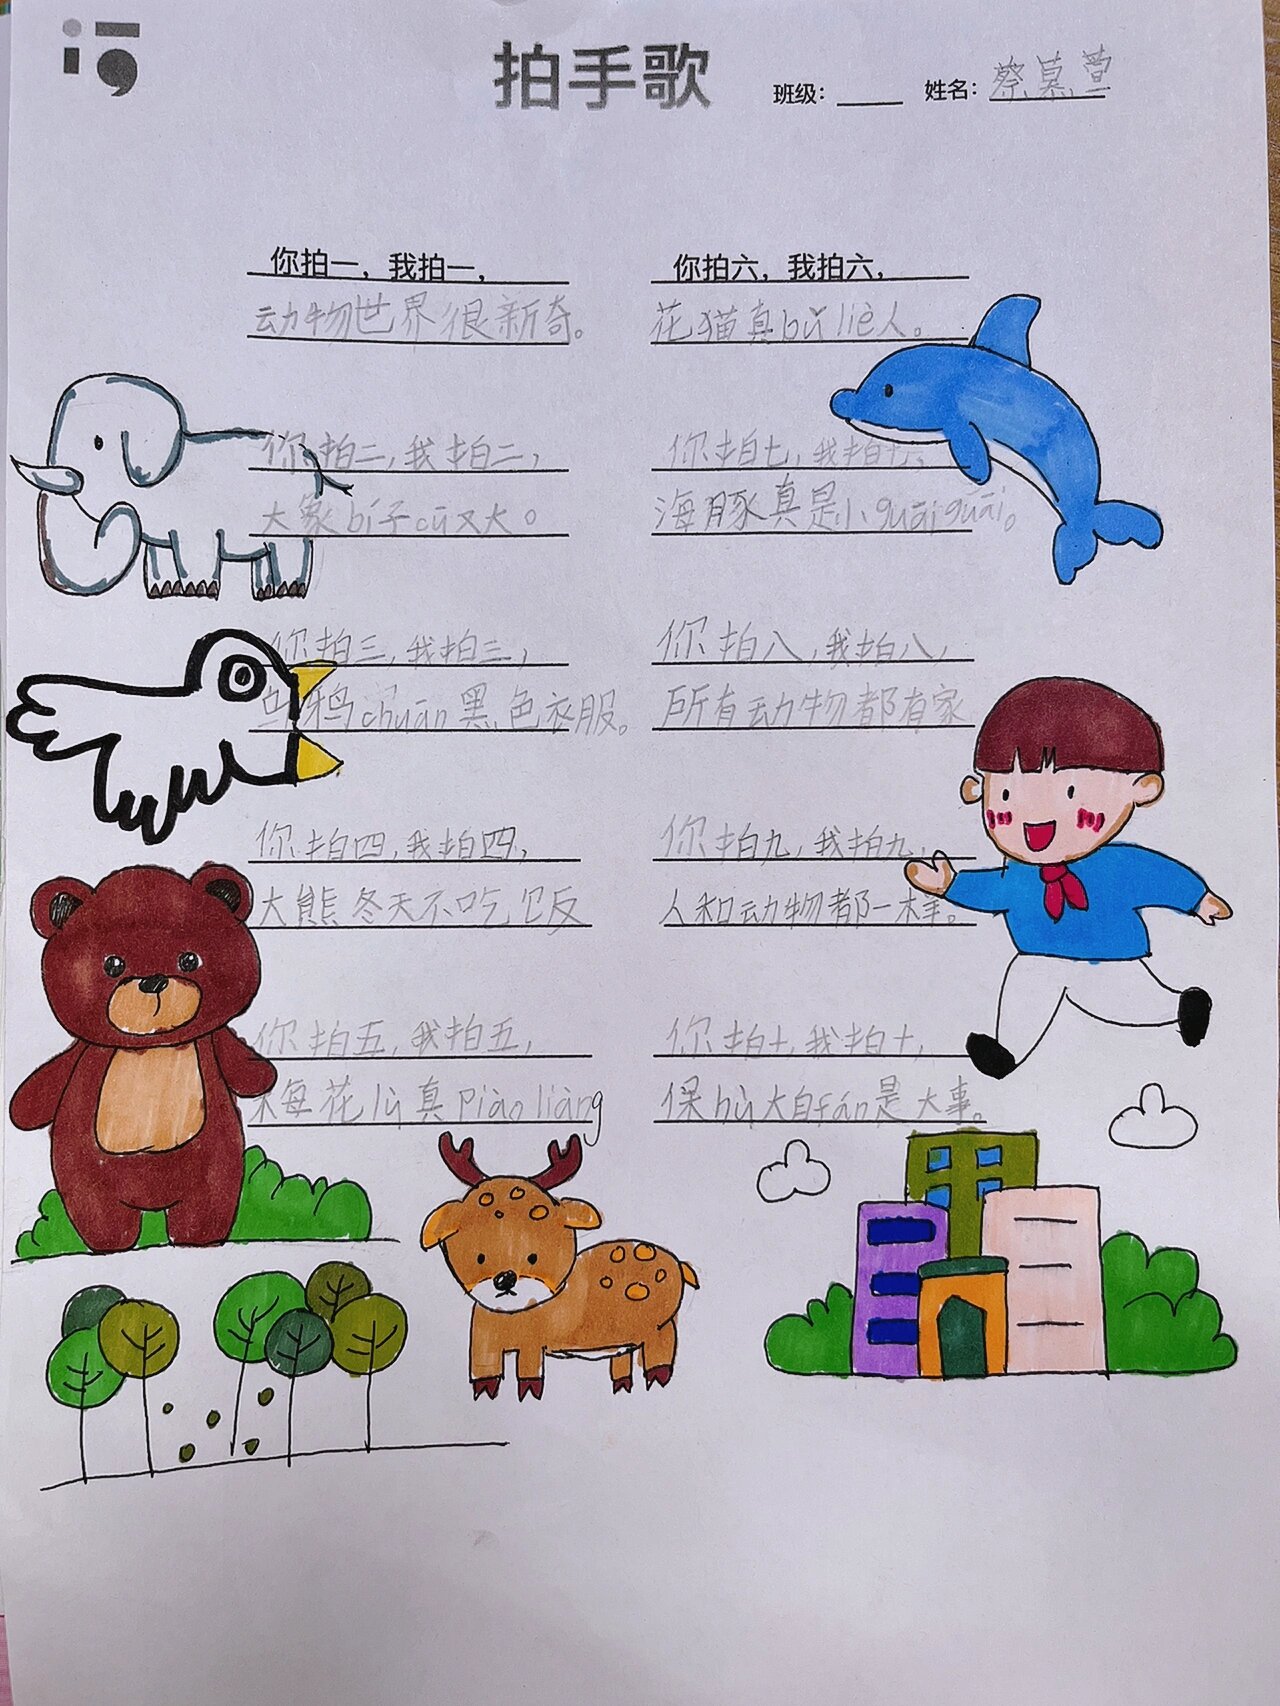 拍手歌
班级： 姓名：蔡慕萱
你拍一，我拍一，
动物世界很新奇。
你拍二，我拍二，
大象bí子cū又大。
你拍三，我拍三，
乌鸦chuān黑色衣服。
你拍四，我拍四，
大熊冬天不吃饭
你拍五，我拍五，
梅花lù真piào liàng
你拍六，我拍六，
花猫真bǔ liè人。
你拍七，我拍七，
海豚真是小guāi guāi。
你拍八，我拍八，
所有动物都有家
你拍九，我拍九，
人和动物都一样。
你拍十，我拍十，
保hù大自rán是大事。